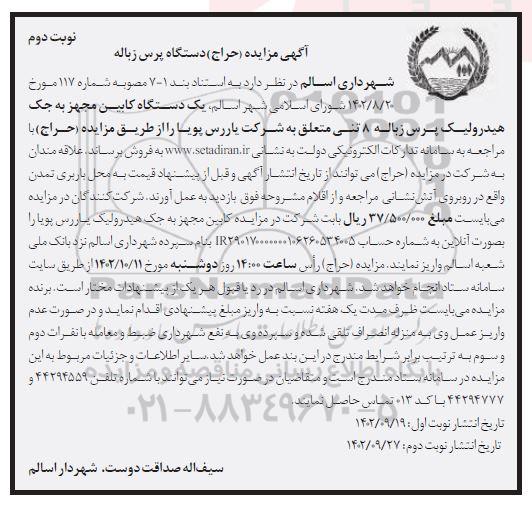 نوبت دوم
آگهی مزایده (حراج) دستگاه پرس زباله
شهرداری اسالم در نظر دارد به استناد بند ۱-۷ مصوبه شماره ۱۱۷ مورخ
۱۴۰۲/۸/۲۰ شورای اسلامی شهر اسالم، یک دستگاه کابین مجهز به جک
هیدرولیک پرس زباله ۸ تنی متعلق به شرکت یاررس پویا را از طریق مزایده (حراج) با
مراجعه به سامانه تدارکات الکترونیکی دولت به نشانی www.setadiran.ir به فروش برساند. علاقه مندان
به شرکت در مزایده (حراج) می توانند از تاریخ انتشار آگهی و قبل از پیشنهاد قیمت به محل باربری تمدن
واقع در روبروی آتش نشانی مراجعه و از اقلام مشروحه فوق بازدید به عمل آورند. شرکت کنندگان در مزایده
می‌بایست مبلغ ۳۷/۵۰۰/۰۰۰ ریال بابت شرکت در مزایده کابین مجهز به جک هیدرولیک یاررس پویا را
بصورت آنلاین به شماره حساب بنام سپرده شهرداری اسالم نزد بانک ملی
شعبه اسالم واریز نمایند. مزایده (حراج) رأس ساعت ۱۴:۰۰ روز دوشنبه مورخ ۱۴۰۲/۱۰/۱۱ از طریق سایت
سامانه ستاد انجام خواهد شد. شهرداری اسالم در رد یا قبول هر یک از پیشنهادات مختار است. برنده
مزایده می‌بایست ظرف مدت یک هفته نسبت به واریز مبلغ پیشنهادی اقدام نماید و در صورت عدم
واریز عمل وی به منزله انصراف تلقی شده و سپرده وی به نفع شهرداری ضبط و معامله با نفرات دوم
و سوم به ترتیب برابر شرایط مندرج در این بند عمل خواهد شد. سایر اطلاعات و جزئیات مربوط به این
مزایده در سامانه ستاد مندرج است و متقاضیان در صورت نیاز می‌توانند با شماره تلفن ۴۴۲۹۴۵۵۹ و
۴۴۲۹۴۷۷۷ با کد ۰۱۳ تماس حاصل نمایند.
تاریخ انتشار نوبت اول: ۱۴۰۲/۰۹/۱۹
تاریخ انتشار نوبت دوم: ۱۴۰۲/۰۹/۲۷
سیف‌اله صداقت دوست، شهردار اسالم
پایگاه اطلاع رسانی مناقصه و مزایده
۰۲۱-۸۸۳۴۹۶۷۰-۵